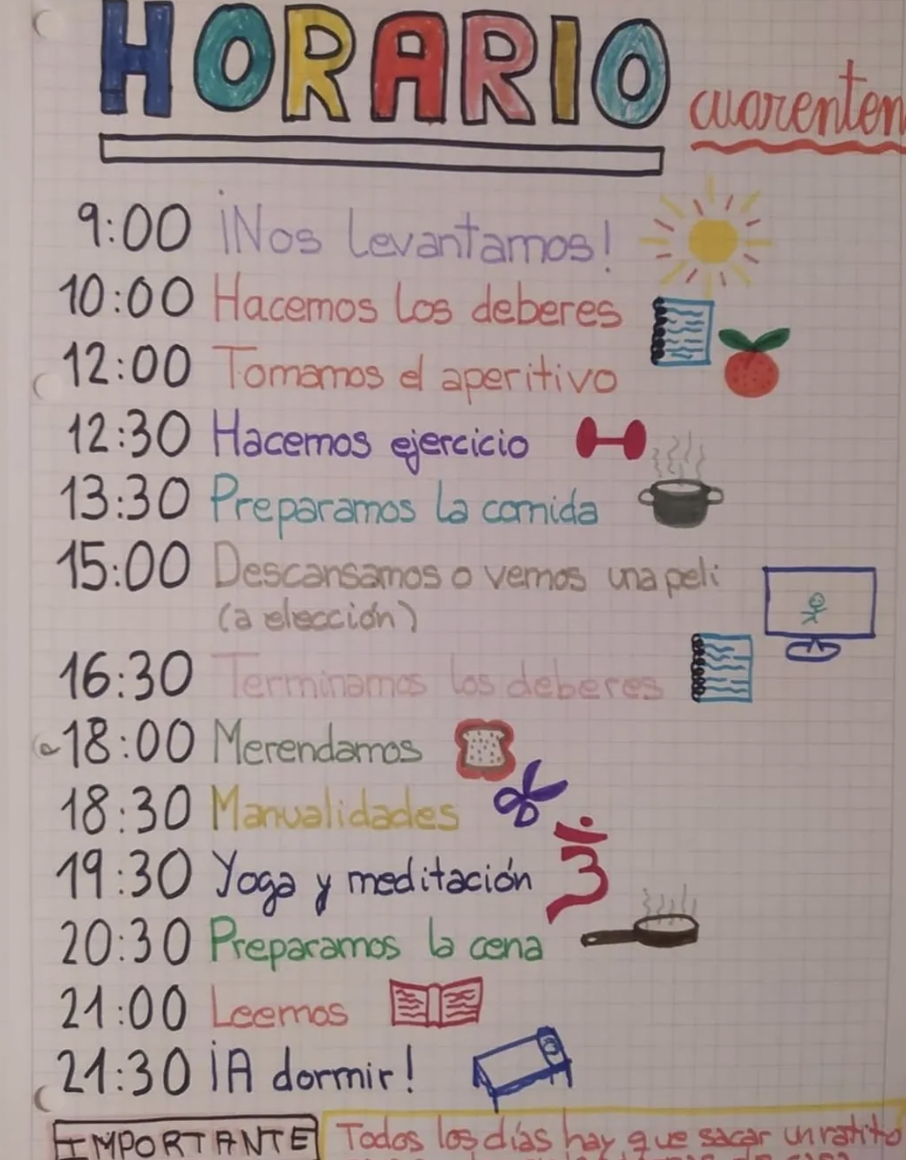 HORARIO cuarenten
9:00 ¡Nos levantamos!
10:00 Hacemos los deberes
12:00 Tomamos el aperitivo
12:30 Hacemos ejercicio
13:30 Preparamos la comida
15:00 Descansamos o vemos una peli
(a elección)
16:30 Terminamos los deberes
18:00 Merendamos
18:30 Manualidades
19:30 Yoga y meditación
20:30 Preparamos la cena
21:00 Leemos
21:30 ¡A dormir!
IMPORTANTE Todos los días hay que sacar un ratito